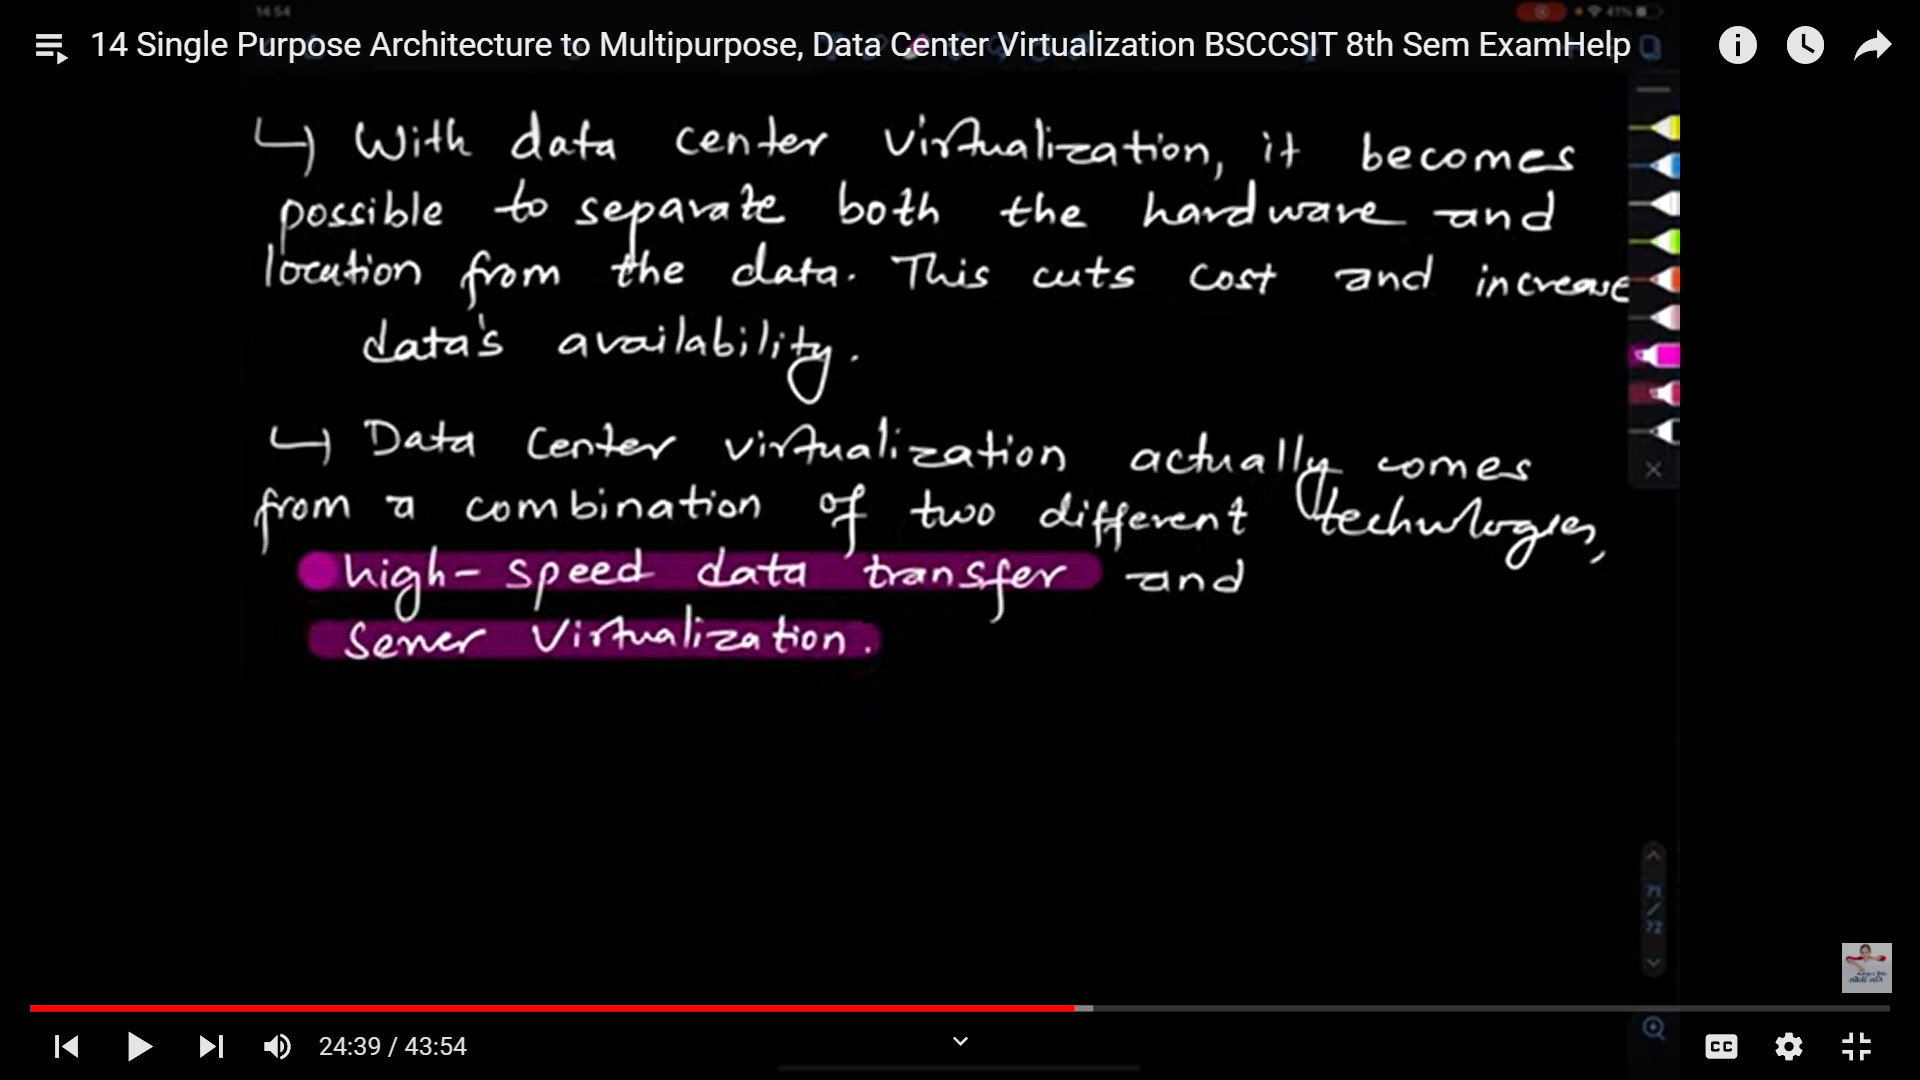 14:54
41%
14 Single Purpose Architecture to Multipurpose, Data Center Virtualization BSCCSIT 8th Sem ExamHelp
↳ With data center virtualization, it becomes
possible to separate both the hardware and
location from the data. This cuts cost and increase
data's availability.
↳ Data Center virtualization actually comes
from a combination of two different technologies,
high-speed data transfer and
Server Virtualization.
71
/
72
24:39 / 43:54
CC